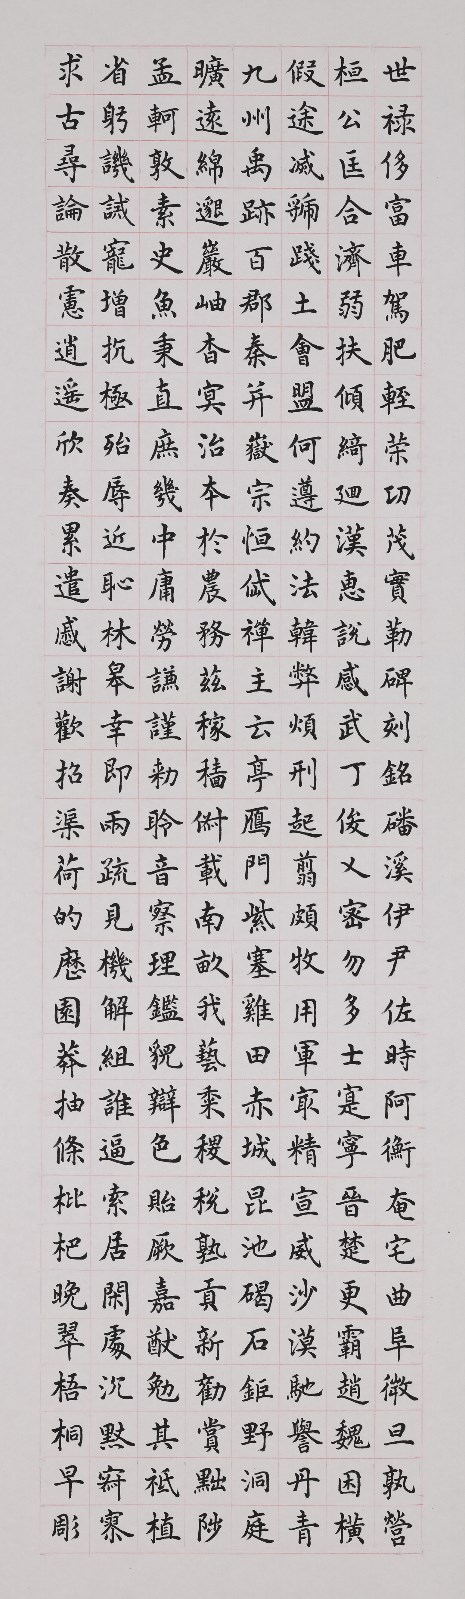 世禄侈富車駕肥軽荣功茂實勒碑刻銘磻溪伊尹佐時阿衡奄宅曲阜微旦孰營
桓公匡合濟弱扶傾綺廻漢惠說感武丁俊乂密勿多士寔寧晉楚更霸趙魏困橫
假途滅虢踐土會盟何遵約法韓弊煩刑起翦頗牧用軍最精宣威沙漠馳譽丹青
九州禹跡百郡秦并嶽宗恒岱禪主云亭鴈門紫塞雞田赤城昆池碣石鉅野洞庭
曠遠綿邈巖岫杳冥治本於農務茲稼穡俶載南畝我藝黍稷稅熟貢新勸賞黜陟
孟軻敦素史魚秉直庶幾中庸勞謙謹勅聆音察理鑑貌辯色貽厥嘉猷勉其祗植
省躬譏誡寵增抗極殆辱近恥林皋幸即兩疏見機解組誰逼索居閑處沉默寂寥
求古尋論散慮逍遥欣奏累遣慼謝歡招渠荷的歷園莽抽條枇杷晚翠梧桐早彫